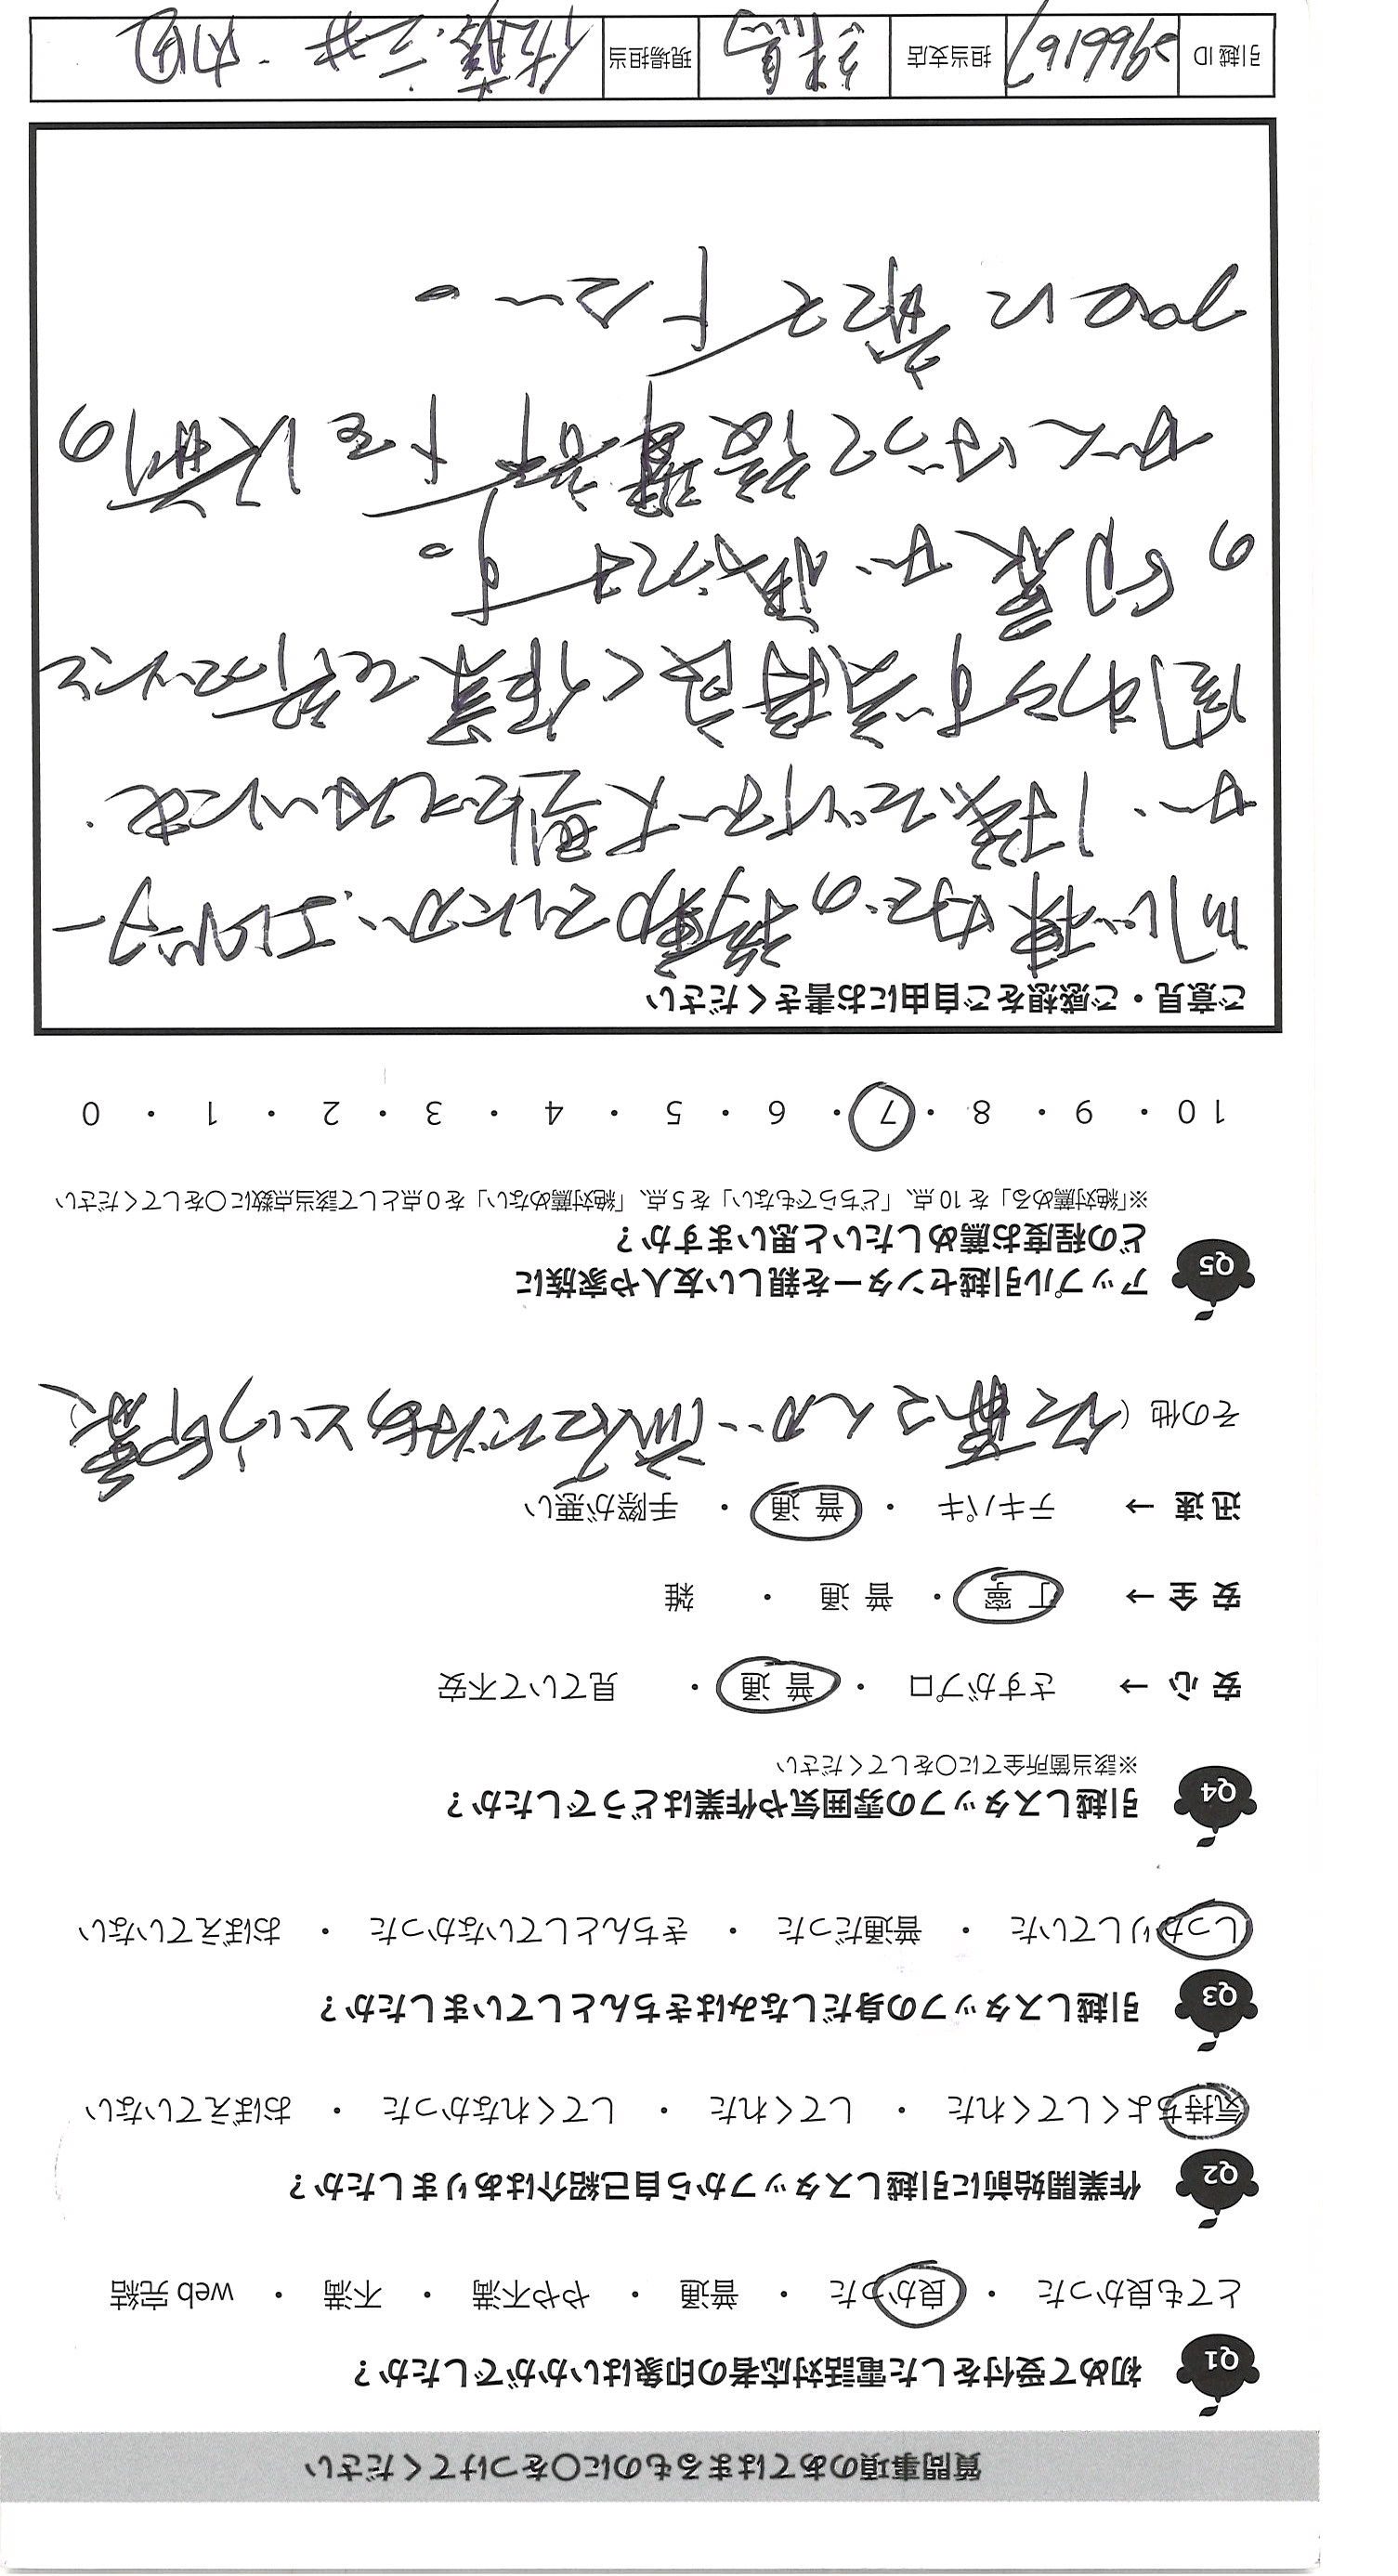 質問事項のあてはまるものに○をつけてください
Q1 初めて受付をした電話対応者の印象はいかがでしたか？
とても良かった ・ 良かった ・ 普通 ・ やや不満 ・ 不満 ・ web 完結
Q2 作業開始前に引越しスタッフから自己紹介はありましたか？
気持ちよくしてくれた ・ してくれた ・ してくれなかった ・ おぼえていない
Q3 引越しスタッフの身だしなみはきちんとしていましたか？
しっかりしていた ・ 普通だった ・ きちんとしていなかった ・ おぼえていない
Q4 引越しスタッフの雰囲気や作業はどうでしたか？
※該当箇所全てに○をしてください
安 心 → さすがプロ ・ 普 通 ・ 見ていて不安
安 全 → 丁 寧 ・ 普 通 ・ 雑
迅 速 → テキパキ ・ 普 通 ・ 手際が悪い
その他（佐藤さんが一流だなあという印象
Q5 アップル引越センターを親しい友人や家族に
どの程度お薦めしたいと思いますか？
※「絶対薦める」を 10 点、「どちらでもない」を 5 点、「絶対薦めない」を 0 点として該当点数に○をしてください
10 ・ 9 ・ 8 ・ 7 ・ 6 ・ 5 ・ 4 ・ 3 ・ 2 ・ 1 ・ 0
ご意見・ご感想をご自由にお書きください
同じ棟内での移動でしたが、エレベーター
が 1基だけで大型でないにも
関わらず気持良く作業を行って
の印象が強いです。
がんばって後輩 を 以 の
プロに育てて下さい。
引越 ID 2966167 担当支店 練馬 現場担当 佐藤・三井・内田